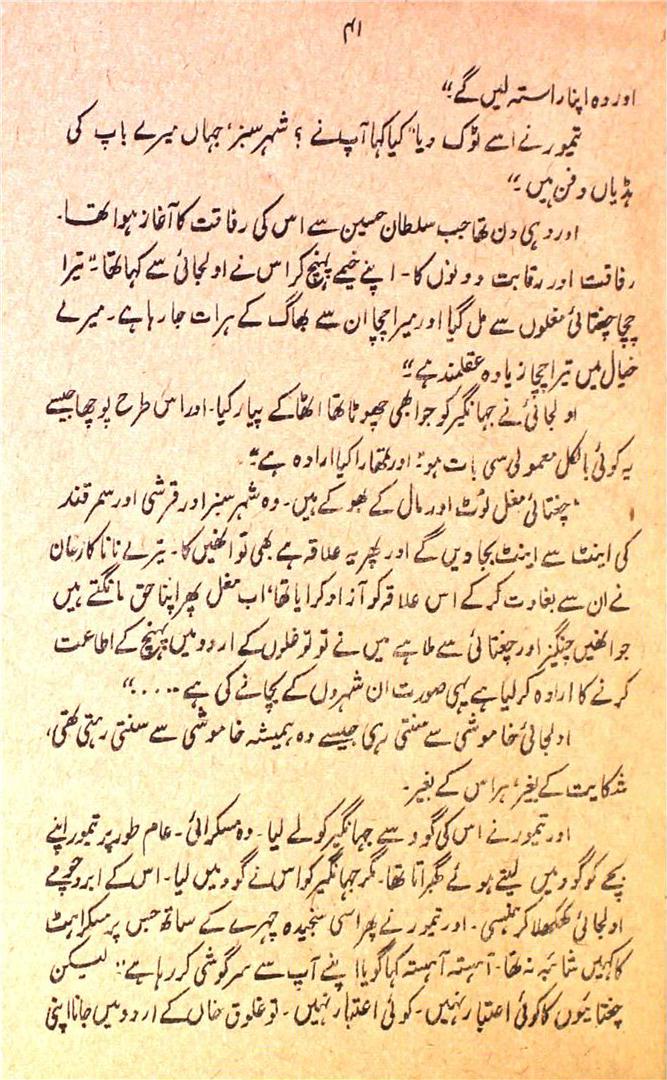 ۴۱
اور وہ اپنا راستہ لیں گے۔“
تیمور نے اسے ٹوک دیا” کیا کہا آپ نے ؟ شہر سبز، جہاں میرے باپ کی
ہڈیاں دفن ہیں۔“
اور وہی دن تھا جب سلطان حسین سے اس کی رفاقت کا آغاز ہوا تھا۔
رفاقت اور رقابت دونوں کا۔ اپنے خیمے پہنچ کر اس نے اولجائی سے کہا تھا۔” تیرا
چچا چغتائی مغلوں سے مل گیا اور میرا چچا ان سے بھاگ کے ہرات جا رہا ہے۔ میرے
خیال میں تیرا چچا زیادہ عقلمند ہے“
اولجائی نے جہانگیر کو جو ابھی چھوٹا تھا اٹھا کے پیار کیا۔ اور اس طرح پوچھا جیسے
یہ کوئی بالکل معمولی سی بات ہو” اور تمھارا کیا ارادہ ہے“
”چغتائی مغل لوٹ اور مال کے بھوکے ہیں۔ وہ شہر سبز اور قرشی اور سمرقند
کی اینٹ سے اینٹ بجا دیں گے اور پھر یہ علاقہ ہے بھی تو انھیں کا۔ تیرے نانا کازغان
نے ان سے بغاوت کر کے اس علاقہ کو آزاد کرایا تھا، اب مغل پھر اپنا حق مانگتے ہیں
جو انھیں چنگیز اور چغتائی سے ملا ہے میں نے تو توغلوں کے اردو میں پہنچ کے اطاعت
کرنے کا ارادہ کر لیا ہے یہی صورت ان شہروں کے بچانے کی ہے ....“
اولجائی خاموشی سے سنتی رہی جیسے وہ ہمیشہ خاموشی سے سنتی رہتی تھی،
شکایت کے بغیر، ہراس کے بغیر۔
اور تیمور نے اس کی گود سے جہانگیر کو لے لیا۔ وہ مسکرائی۔ عام طور پر تیمور اپنے
بچے کو گود میں لیتے ہوئے گھبراتا تھا۔ مگر جہانگیر کو اس نے گود میں لیا۔ اس کے ابرو چومے
اولجائی کھلکھلا کر ہنسی۔ اور تیمور نے پھر اسی سنجیدہ چہرے کے ساتھ جس پر مسکراہٹ
کا کہیں شائبہ نہ تھا۔ آہستہ آہستہ کہا گویا اپنے آپ سے سرگوشی کر رہا ہے” لیکن
چغتائیوں کا کوئی اعتبار نہیں۔ کوئی اعتبار نہیں۔ توغلوق خاں کے اردو میں جانا اپنی